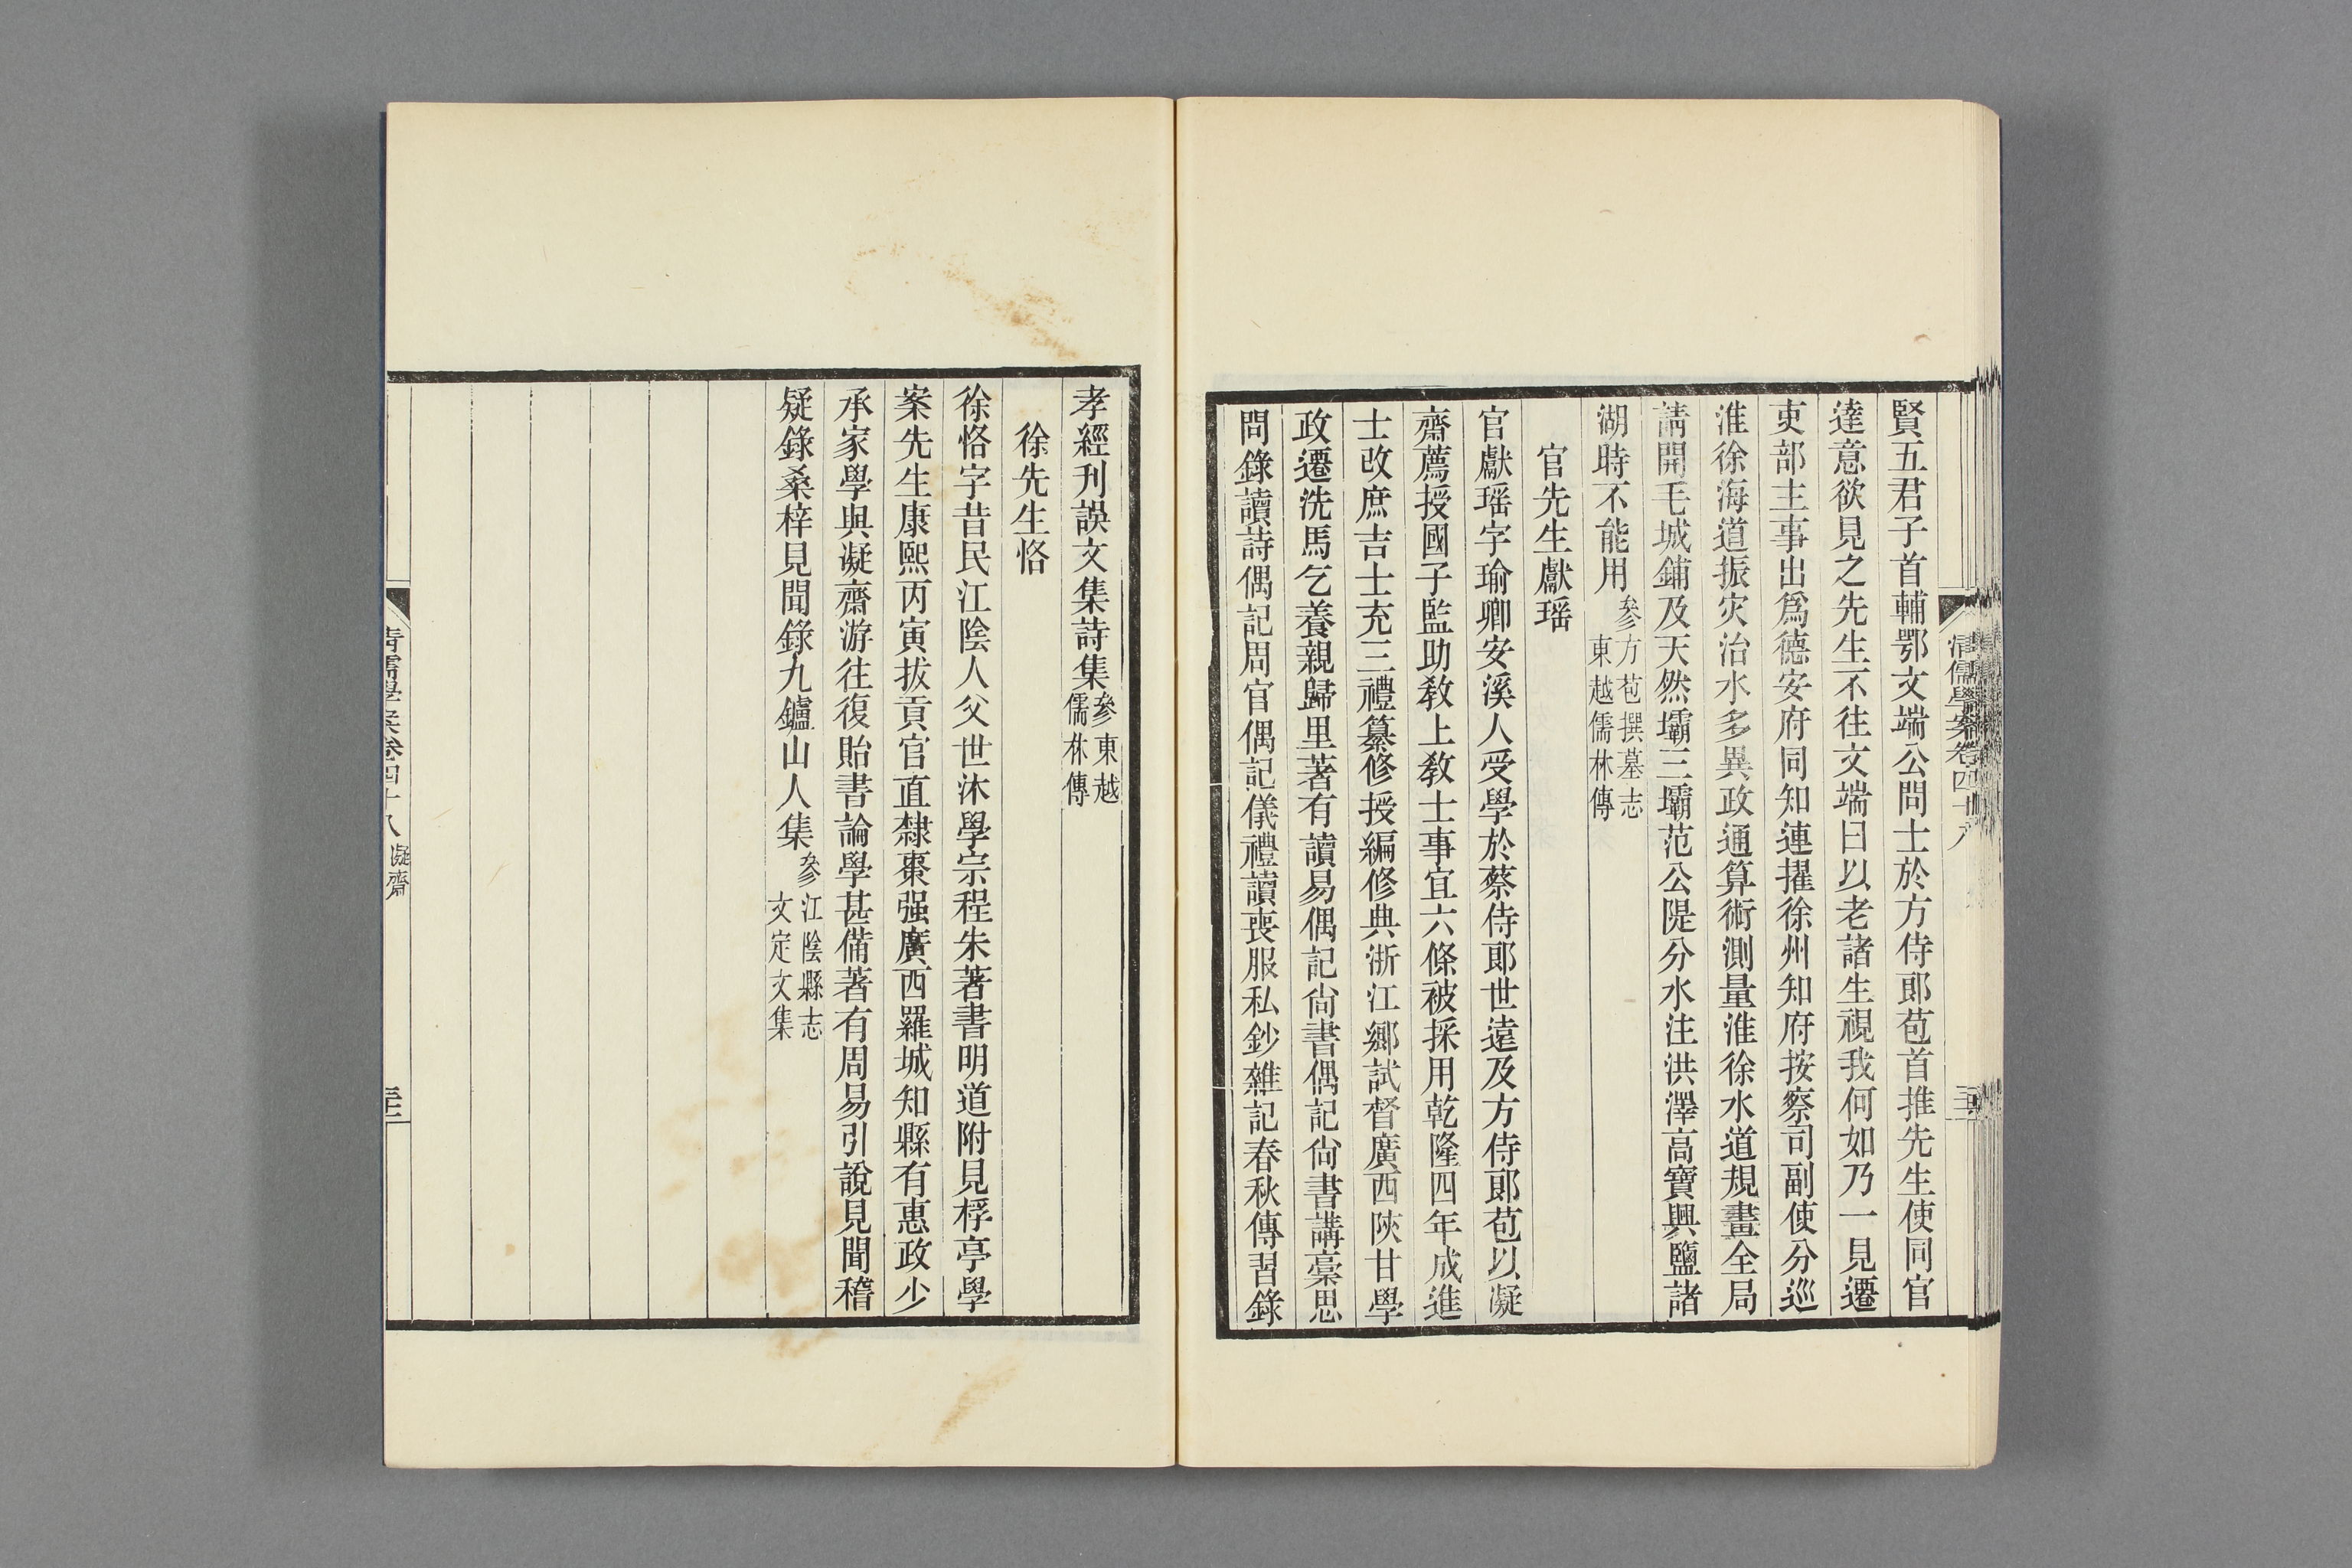 賢五君子首輔鄂文端公問士於方侍郎苞首推先生使同官
達意欲見之先生不往文端曰以老諸生視我何如乃一見遷
吏部主事出爲德安府同知連擢徐州知府按察司副使分巡
淮徐海道振灾治水多異政通算術測量淮徐水道規畫全局
請開毛城鋪及天然壩三壩范公隄分水注洪澤高寶興鹽諸
湖時不能用參方苞撰墓志
東越儒林傳
官先生獻瑶
官獻瑶字瑜卿安溪人受學於蔡侍郎世遠及方侍郎苞以凝
齋薦授國子監助教上教士事宜六條被採用乾隆四年成進
士改庶吉士充三禮纂修授編修典浙江鄉試督廣西陝甘學
政遷洗馬乞養親歸里著有讀易偶記尙書偶記尙書講稾思
問錄讀詩偶記周官偶記儀禮讀喪服私鈔雜記春秋傳習錄
清儒學案卷四十八
孝經刊誤文集詩集參東越
儒林傳
徐先生恪
徐恪字昔民江陰人父世沐學宗程朱著書明道附見桴亭學
案先生康熙丙寅拔貢官直隸棗强廣西羅城知縣有惠政少
承家學與凝齋游往復貽書論學甚備著有周易引說見聞稽
疑錄桑梓見聞錄九鑪山人集參江陰縣志
文定文集
清儒學案卷四十八 凝齋